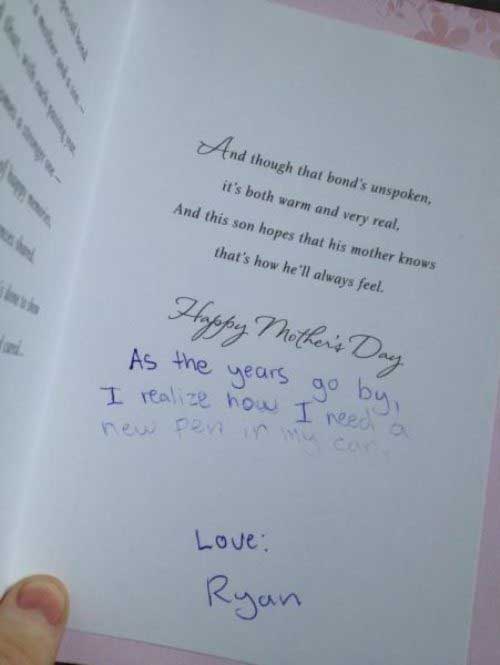 And though that bond's unspoken,
it's both warm and very real,
And this son hopes that his mother knows
that's how he'll always feel.
Happy Mother's Day
As the years go by,
I realize how I need a
new pen in my car.
Love:
Ryan